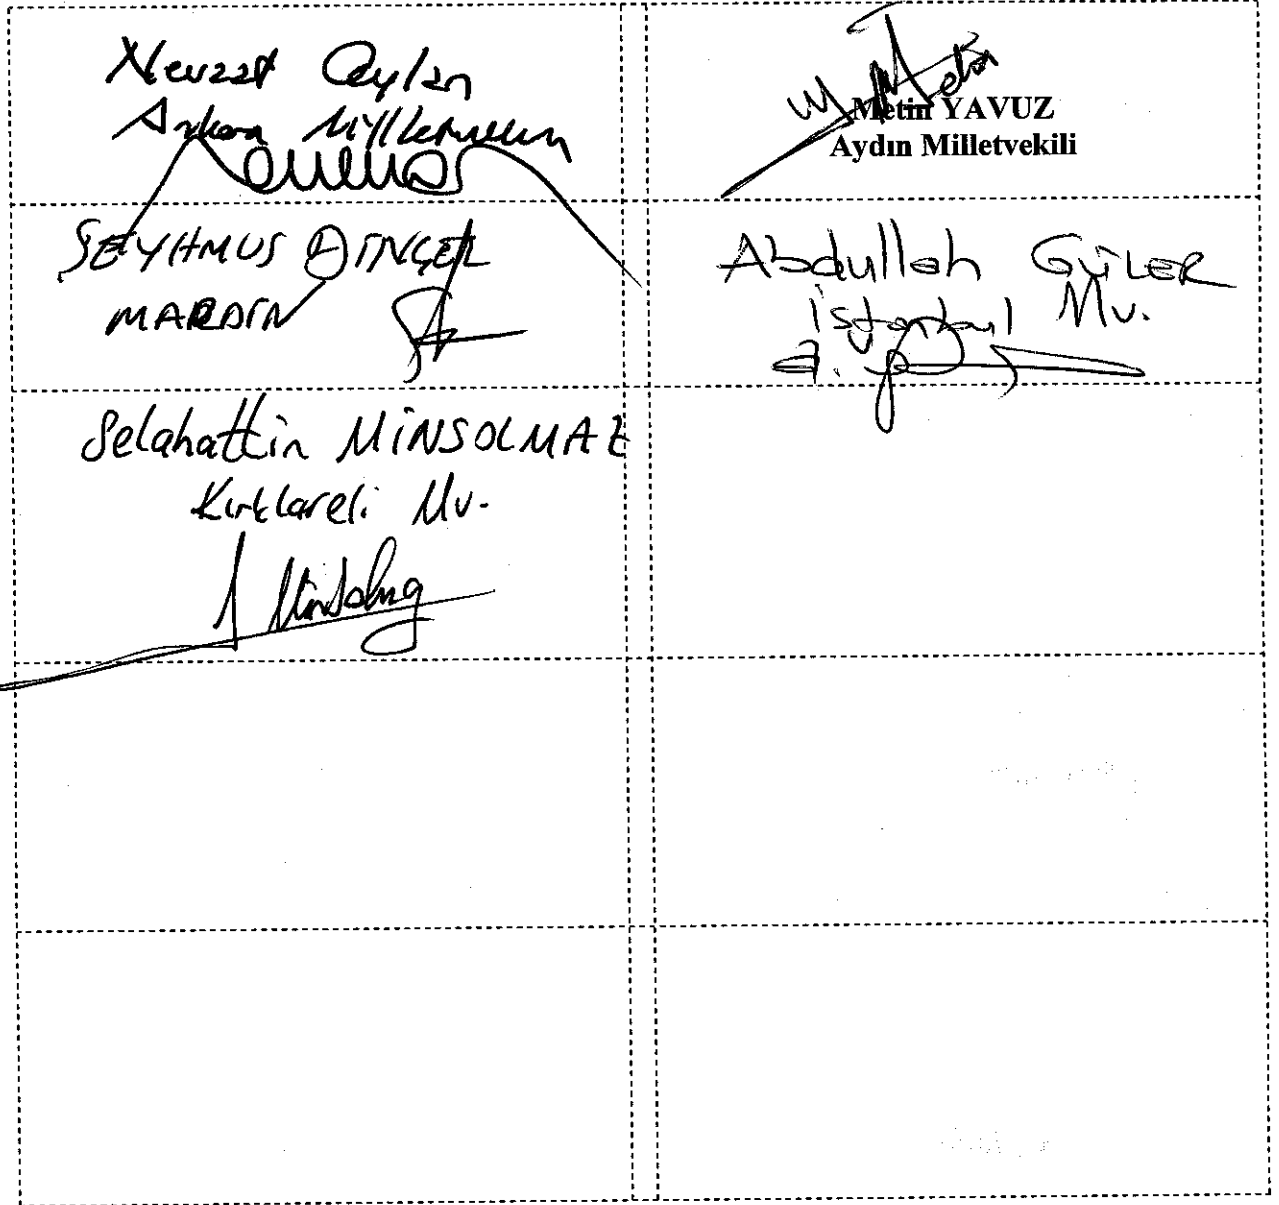 Nevzat Ceylan
Ankara Milletvekili
Metin
Metin YAVUZ
Aydın Milletvekili
ŞEYHMUS DİNÇEL
MARDİN
Abdullah GÜLER
İstanbul Mv.
Selahattin MİNSOLMAZ
Kırklareli Mv.